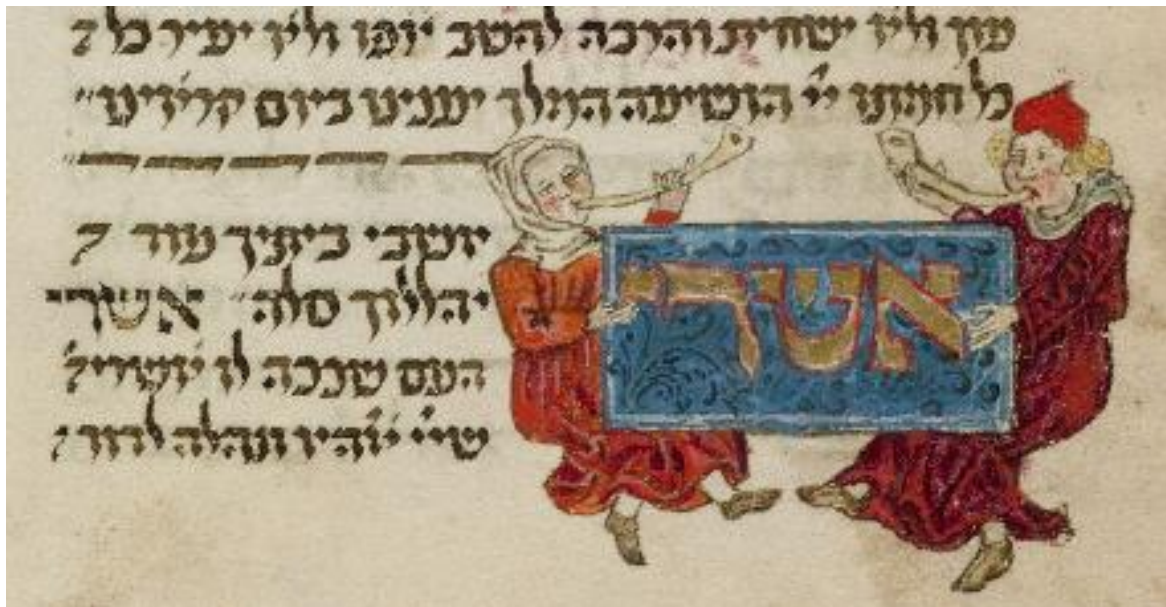 עון ולא ישחית והרבה להשב אפו ולא יעיר כל
כל חמתו יי הושיעה המלך יעננו ביום קראינו
אשרי
יושבי ביתיך עוד
יהללוך סלה אשרי
העם שככה לו אשרי
העם שיי אלהיו תהלה לדוד